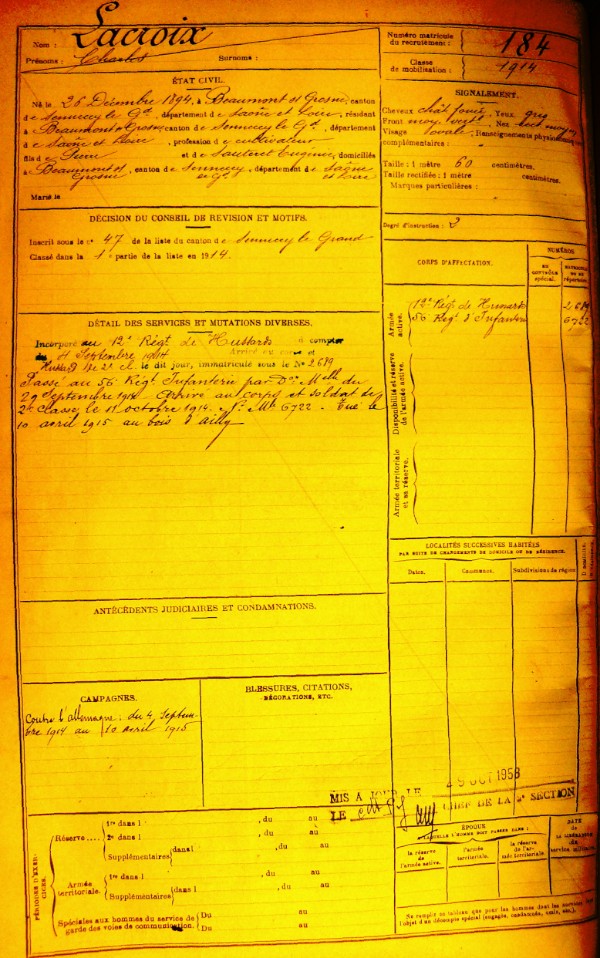 Nom : Lacroix
Prénoms : Charles Surnoms :
Numéro matricule du recrutement : 184
Classe de mobilisation : 1914
ÉTAT CIVIL.
Né le 26 Décembre 1894, à Beaumont s/ Grosne, canton
de Sennecey le Gd, département de Saône et Loire, résidant
à Beaumont s/ Grosne canton de Sennecey le Gd, département
de Saône et Loire, profession de cultivateur
fils de et de Eugénie, domiciliés
à Beaumont s/ Grosne, canton de Sennecey le Gd, département de Saône et Loire
Marié le
SIGNALEMENT.
Cheveux chât foncé Yeux gris
Front moy Nez moy
Visage ovale, Renseignements physionomiques
complémentaires :
Taille : 1 mètre 60 centimètres.
Taille rectifiée : 1 mètre centimètres.
Marques particulières :
Degré d'instruction : 3
DÉCISION DU CONSEIL DE REVISION ET MOTIFS.
Inscrit sous le no 47 de la liste du canton de Sennecey le Grand
Classé dans la 1e partie de la liste en 1914.
CORPS D'AFFECTATION.
NUMÉROS
au contrôle spécial.
Armée active.
12e Régt de Hussards 2619
56 Regt d'Infanterie 6722
Disponibilité et réserve de l'armée active.
Armée territoriale et sa réserve.
DÉTAIL DES SERVICES ET MUTATIONS DIVERSES.
Incorporé au 12e Régt de Hussards à compter
du 4 Septembre 1914 Arrivé au corps et
Hussard de 2e cl. le dit jour, immatriculé sous le No 2619
Passé au 56 Régt Infanterie par Don Melle du
29 Septembre 1914 Arrivé au corps et soldat de
2e classe le octobre 1914. No Mle 6722. Tué le
10 avril 1915 au bois d'ailly
LOCALITÉS SUCCESSIVES HABITÉES
PAR SUITE DE CHANGEMENTS DE DOMICILE OU DE RÉSIDENCE.
Dates. Communes. Subdivisions de région
ANTÉCÉDENTS JUDICIAIRES ET CONDAMNATIONS.
CAMPAGNES.
Contre l'allemagne : du 4 Septem-
bre 1914 au 10 avril 1915
BLESSURES, CITATIONS,
DÉCORATIONS, ETC.
MIS A JOUR LE
OCT 1958
LE CHEF DE LA SECTION
PÉRIODES D'EXERCICES.
Réserve
1re dans l , du au
2e dans l , du au
Supplémentaires dans l , du au
Armée territoriale.
1re dans l , du au
Supplémentaires dans l , du au
Spéciales aux hommes du service de garde des voies de communication. Du au
Du au
ÉPOQUE
À LAQUELLE L'HOMME DOIT PASSER DANS :
la réserve de l'armée active.
l'armée territoriale.
la réserve de l'armée territoriale.
DATE de la libération du service militaire.
Ne remplir ce tableau que pour les hommes dont les services
l'objet d'un décompte spécial (engagés, condamnés, omis, etc.).